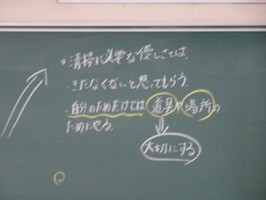 ・清掃に必要な優しさとは、
・きたなくないと思ってもらう。
・自分のためだけでは 道具や場所の
ためにやる。
大切にする